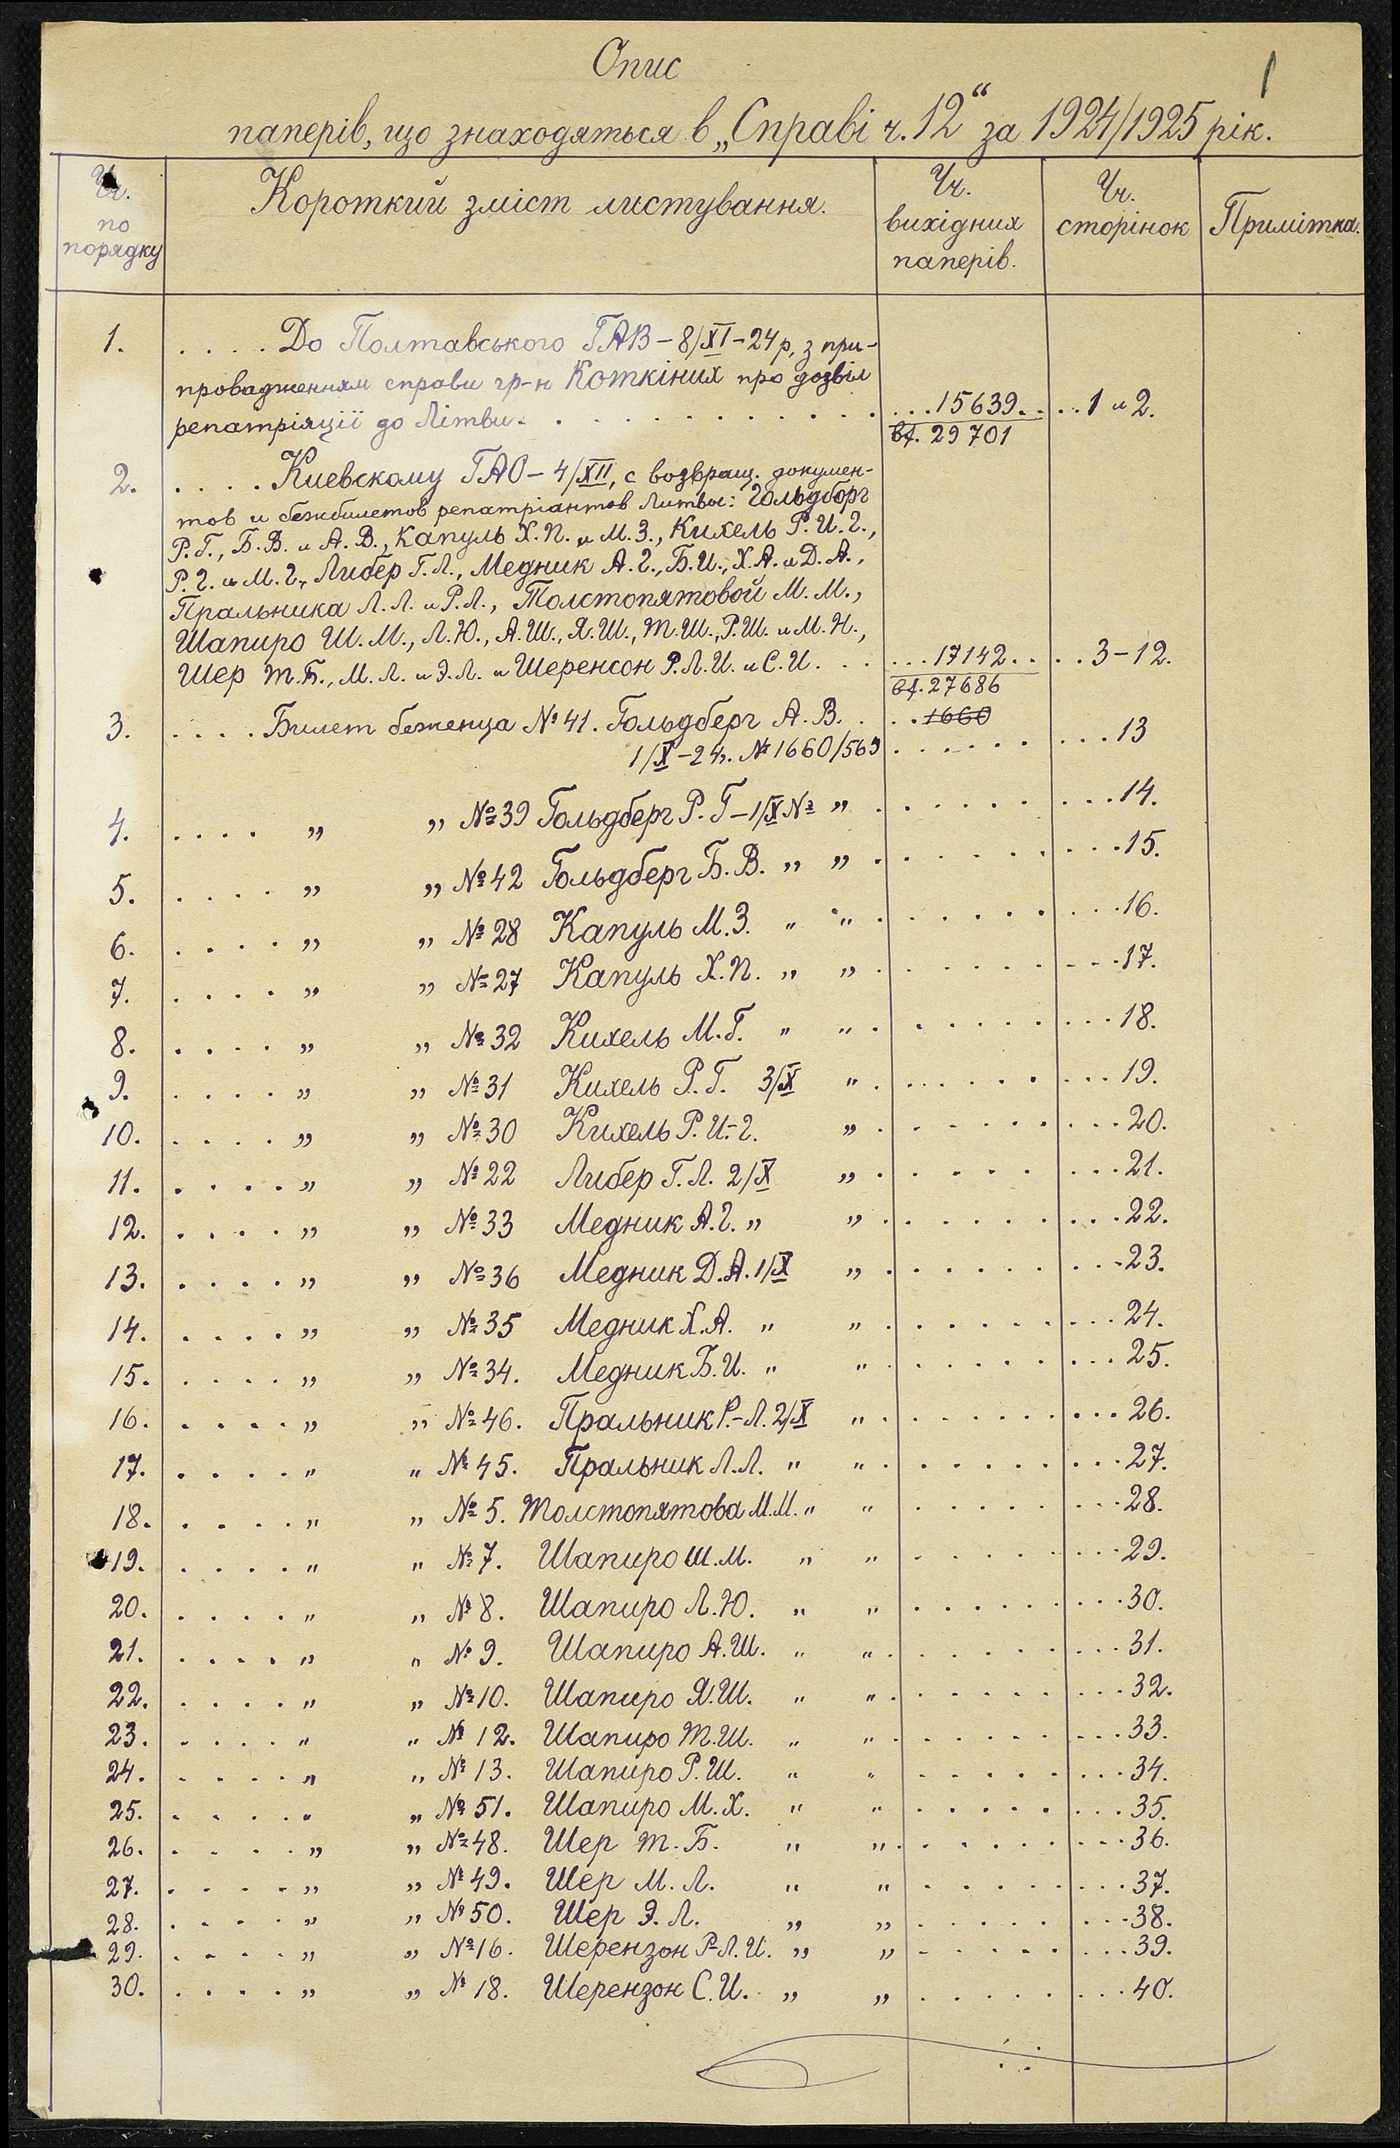 Опис
1
паперів, що знаходяться в „Справі ч. 12“ за 1924/1925 рік.
Чч. по порядку
Короткий зміст листування.
Чч. вихідних паперів.
Чч. сторінок
Примітка.
1. . . . . До Полтавського ГАВ – 8/XI – 24 р, з при-
провадженням справи гр-н Коткіних про дозвіл
репатріяції до Літви. . . . 15639. . . . 1 и 2.
вх. 29701
2. . . . . Киевскому ГАО – 4/XII, с возвращ. докумен-
тов и бежбилетов репатріантов Литвы: Гольдборг
Р.Г., Б.В. и А.В., Капуль Х.П. и М.З., Кихель Р.И.Г.,
Р.Г. и М.Г., Либер Г.Л., Медник А.Г., Б.И., Х.А. и Д.А.,
Пральника Л.Л. и Р.Л., Толстопятовой М.М.,
Шапиро Ш.М., Л.Ю., А.Ш., Я.Ш., Т.Ш., Р.Ш. и М.Н.,
Шер Т.Б., М.Л. и Э.Л. и Шеренсон Р.Л.И. и С.И. . . . 17142. . . . 3–12.
вх. 27686
3. . . . . Билет беженца № 41. Гольдберг А.В. . . . 1660
1/X – 24. № 1660/569 . . . . 13
4. . . . . „ „ № 39 Гольдберг Р.Г – 1/X № „ . . . . 14.
5. . . . . „ „ № 42 Гольдберг Б.В. „ „ . . . . 15.
6. . . . . „ „ № 28 Капуль М.З. „ „ . . . . 16.
7. . . . . „ „ № 27 Капуль Х.П. „ „ . . . . 17.
8. . . . . „ „ № 32 Кихель М.Г. „ „ . . . . 18.
9. . . . . „ „ № 31 Кихель Р.Г. 3/X „ . . . . 19.
10. . . . . „ „ № 30 Кихель Р.И.-Г. „ . . . . 20.
11. . . . . „ „ № 22 Либер Г.Л. 2/X „ . . . . 21.
12. . . . . „ „ № 33 Медник А.Г. „ „ . . . . 22.
13. . . . . „ „ № 36 Медник Д.А. 1/X „ . . . . 23.
14. . . . . „ „ № 35 Медник Х.А. „ „ . . . . 24.
15. . . . . „ „ № 34. Медник Б.И. „ „ . . . . 25.
16. . . . . „ „ № 46. Пральник Р.-Л. 2/X „ . . . . 26.
17. . . . . „ „ № 45. Пральник Л.Л. „ „ . . . . 27.
18. . . . . „ „ № 5. Толстопятова М.М. „ „ . . . . 28.
19. . . . . „ „ № 7. Шапиро Ш.М. „ „ . . . . 29.
20. . . . . „ „ № 8. Шапиро Л.Ю. „ „ . . . . 30.
21. . . . . „ „ № 9. Шапиро А.Ш. „ „ . . . . 31.
22. . . . . „ „ № 10. Шапиро Я.Ш. „ „ . . . . 32.
23. . . . . „ „ № 12. Шапиро Т.Ш. „ „ . . . . 33.
24. . . . . „ „ № 13. Шапиро Р.Ш. „ „ . . . . 34.
25. . . . . „ „ № 51. Шапиро М.Х. „ „ . . . . 35.
26. . . . . „ „ № 48. Шер Т.Б. „ „ . . . . 36.
27. . . . . „ „ № 49. Шер М.Л. „ „ . . . . 37.
28. . . . . „ „ № 50. Шер Э.Л. „ „ . . . . 38.
29. . . . . „ „ № 16. Шерензон Р-Л.И. „ „ . . . . 39.
30. . . . . „ „ № 18. Шерензон С.И. „ „ . . . . 40.